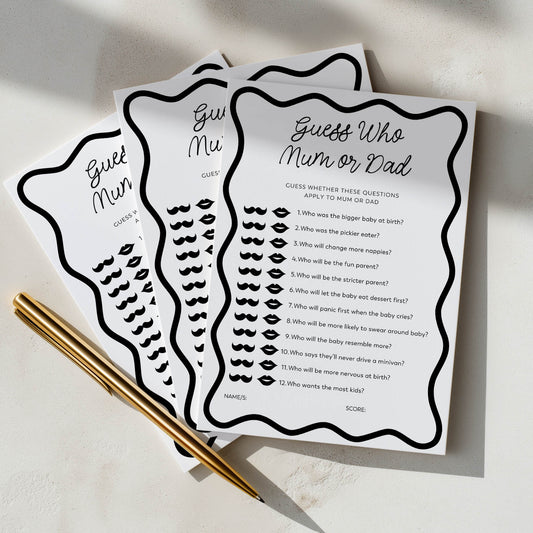 Guess Who
Mum or Dad
GUESS WHETHER THESE QUESTIONS
APPLY TO MUM OR DAD
1. Who was the bigger baby at birth?
2. Who was the pickier eater?
3. Who will change more nappies?
4. Who will be the fun parent?
5. Who will be the stricter parent?
6. Who will let the baby eat dessert first?
7. Who will panic first when the baby cries?
8. Who will be more likely to swear around baby?
9. Who will the baby resemble more?
10. Who says they'll never drive a minivan?
11. Who will be more nervous at birth?
12. Who wants the most kids?
NAME/S:
SCORE:
Gu
Mum
GUESS W
Gue
Mum
GUESS